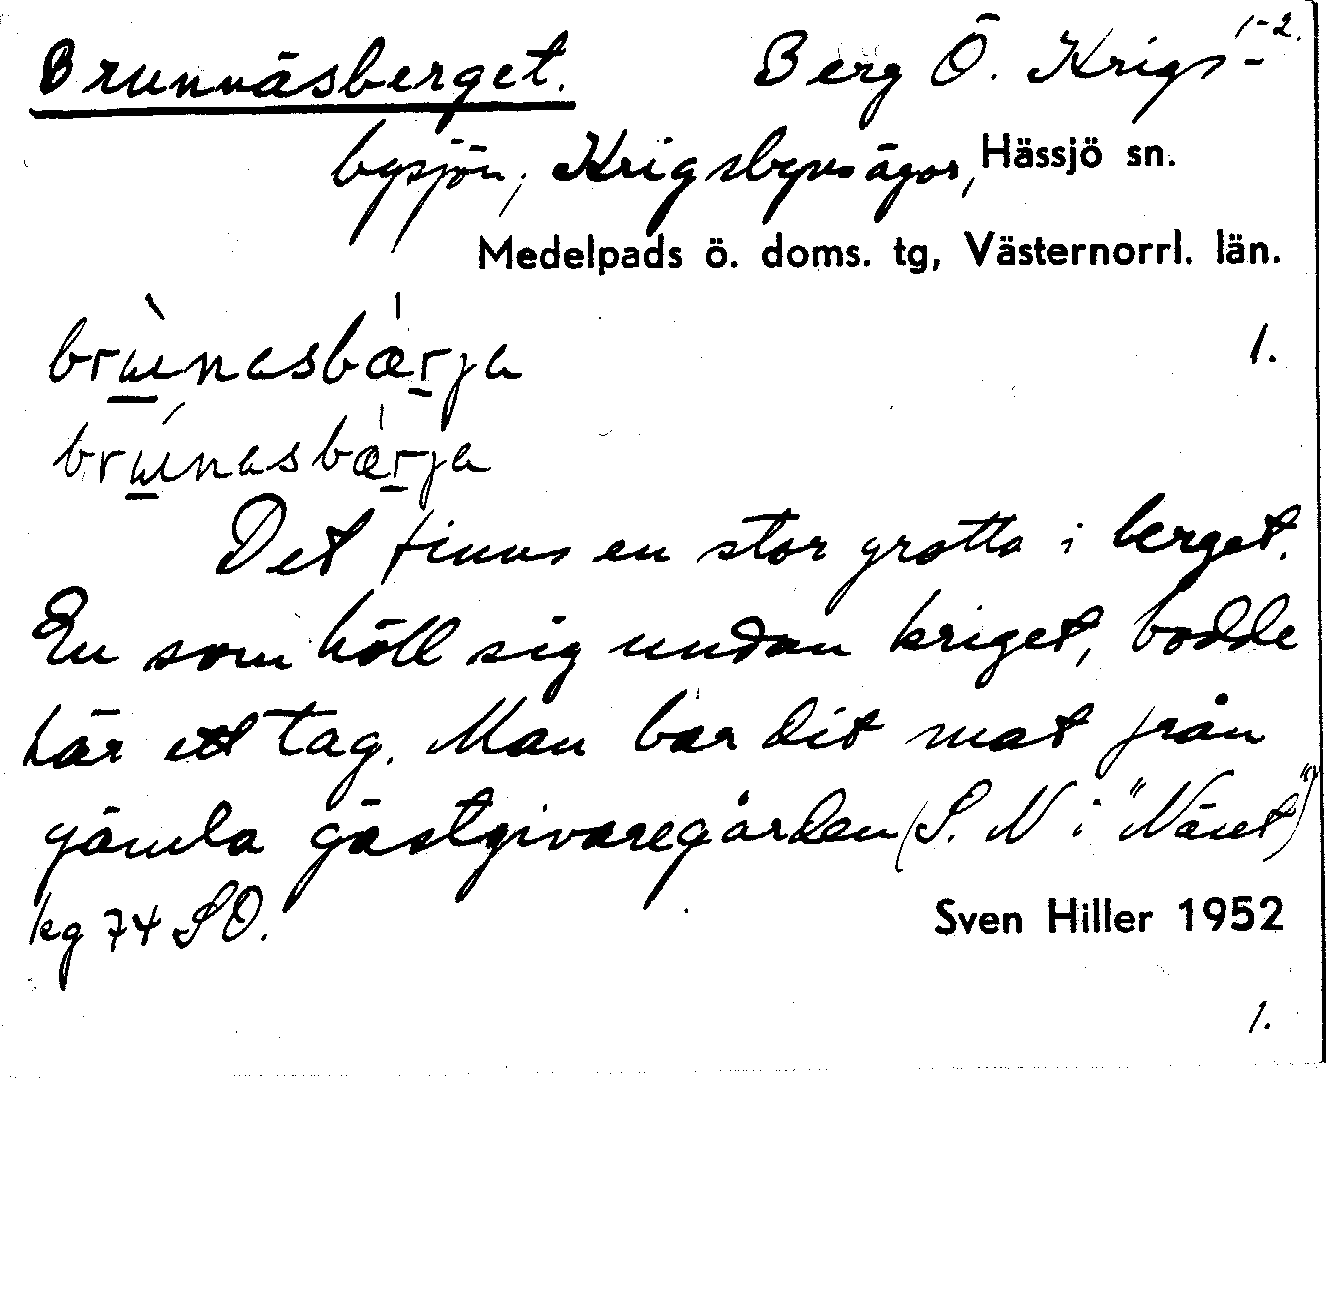 Brunnäsberget. Berg Ö. Krigs- 1-2.
bysjön, Krigsbyns ägor, Hässjö sn.
Medelpads ö. doms. tg, Västernorrl. län.
1.
Det finns en stor grotta i berget.
En som höll sig undan kriget, bodde
här ett tag. Man bar dit mat från
gamla gästgivaregården (S. N i "Näset")
kg 74 SO. Sven Hiller 1952
1.